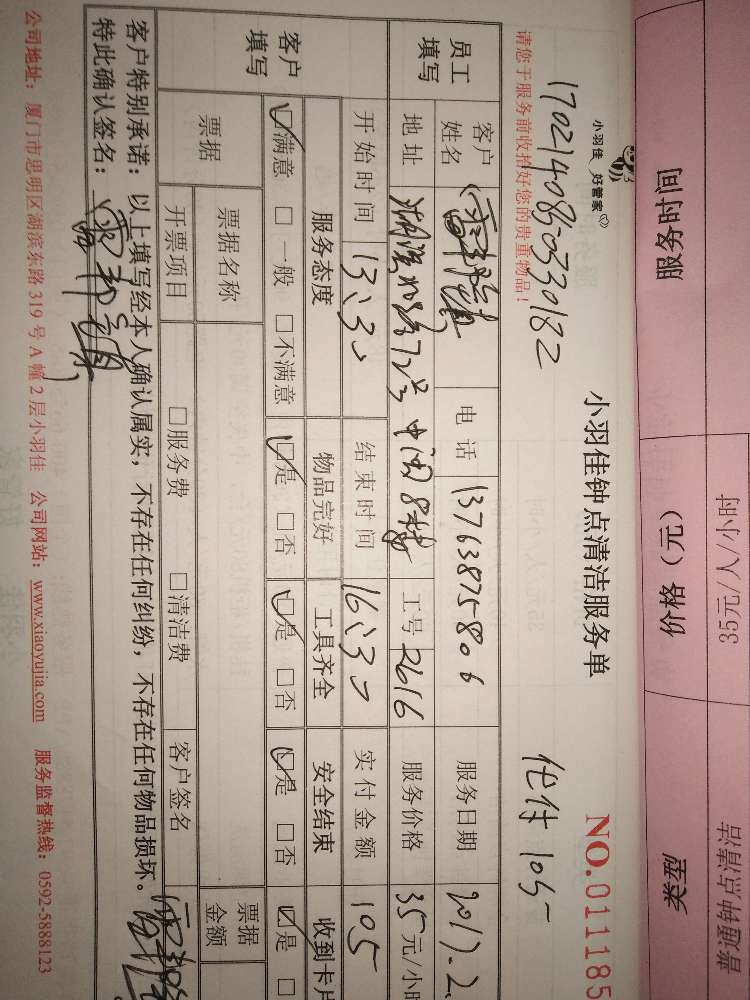 服务时间 价格（元） 类型
35元/人/小时 普通钟点清洁
小羽佳 好管家
小羽佳钟点清洁服务单
NO.011185
1702140850330182
代付105
请您于服务前收拾好您的贵重物品！
员工填写
客户姓名
电话 13763875806
服务日期 2017.2.
地址
72号
8楼
工号 2616
服务价格 35元/小时
开始时间 13:30
结束时间 16:30
实付金额 105
客户填写
服务态度 物品完好 工具齐全 安全结束 收到卡片
☑满意 □一般 □不满意 ☑是 □否 ☑是 □否 ☑是 □否 ☑是 □
票据
票据名称
票据金额
开票项目 □服务费 □清洁费 客户签名
客户特别承诺：以上填写经本人确认属实，不存在任何纠纷，不存在任何物品损坏。
特此确认签名：
公司地址：厦门市思明区湖滨东路319号A幢2层小羽佳 公司网站：www.xiaoyujia.com 服务监督热线：0592-5888123